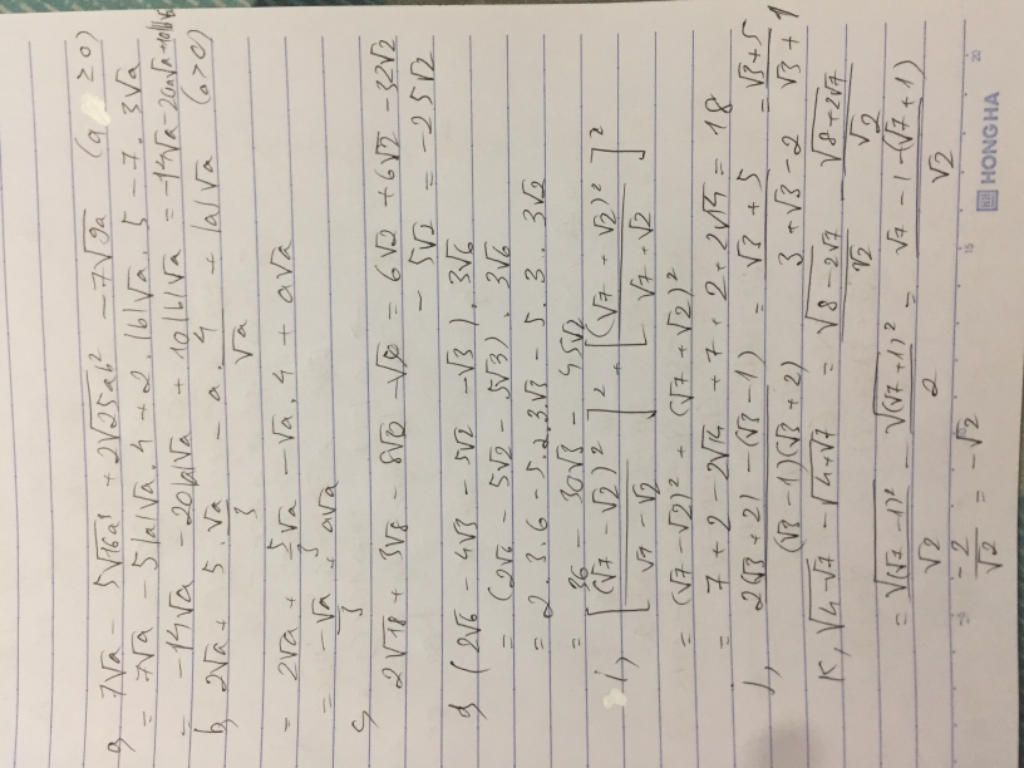 a, 7√a - 5√16a³ + 2√25ab² - 7√9a (a ≥ 0)
= 7√a - 5|a|√a.4 + 2.|b|√a.5 - 7.3√a
= -14√a - 20|a|√a + 10|b|√a = -14√a - 20a√a + 10|b|√a
b, 2√a + 5.√a/3 - a.4/√a + |a|√a (a>0)
= 2√a + 5/3√a - √a.4 + a√a
= -√a/3 + a√a
c,
2√18 + 3√8 - 8√8 - √50 = 6√2 + 6√2 - 32√2
- 5√2 = -25√2
d, (2√6 - 4√3 - 5√2 - √3).3√6
= (2√6 - 5√2 - 5√3).3√6
= 2.3.6 - 5.2.3√3 - 5.3.3√2
= 36 - 30√3 - 45√2
i, [(√7 - √2)²/√7 - √2]² + [(√7 + √2)²/√7 + √2]²
= (√7 - √2)² + (√7 + √2)²
= 7 + 2 - 2√14 + 7 + 2 + 2√14 = 18
j, 2(√3 + 2) - (√3 - 1)/(√3 - 1)(√3 + 2) = √3 + 5/3 + √3 - 2 = √3 + 5/√3 + 1
K, √4 - √7 - √4 + √7 = √8 - 2√7/√2 - √8 + 2√7/√2
= √(√7 - 1)²/√2 - √(√7 + 1)²/2 = √7 - 1 - (√7 + 1)/√2
= -2/√2 = -√2
HONG HA
15
20